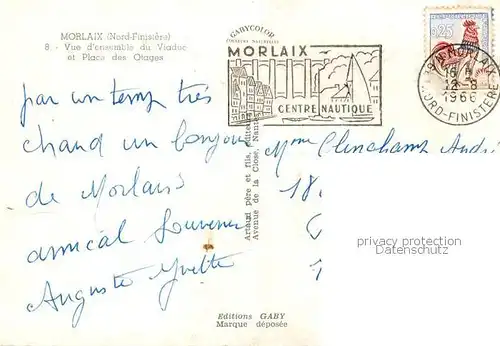 MORLAIX (Nord-Finistère)
8. - Vue d'ensemble du Viaduc
et Place des Otages
GABYCOLOR
COULEURS NATURELLES
MORLAIX
CENTRE NAUTIQUE
0,25
MORLAIX
16 H
12-8
1966
NORD-FINISTERE
par un temps très
chaud un bonjour
de Morlaix
amical Souvenir
Auguste Yvette
Artaud père et fils, éditeurs
Avenue de la Close, Nantes
Mme Clinchamt André
18
privacy protection
Datenschutz
Editions GABY
Marque déposée